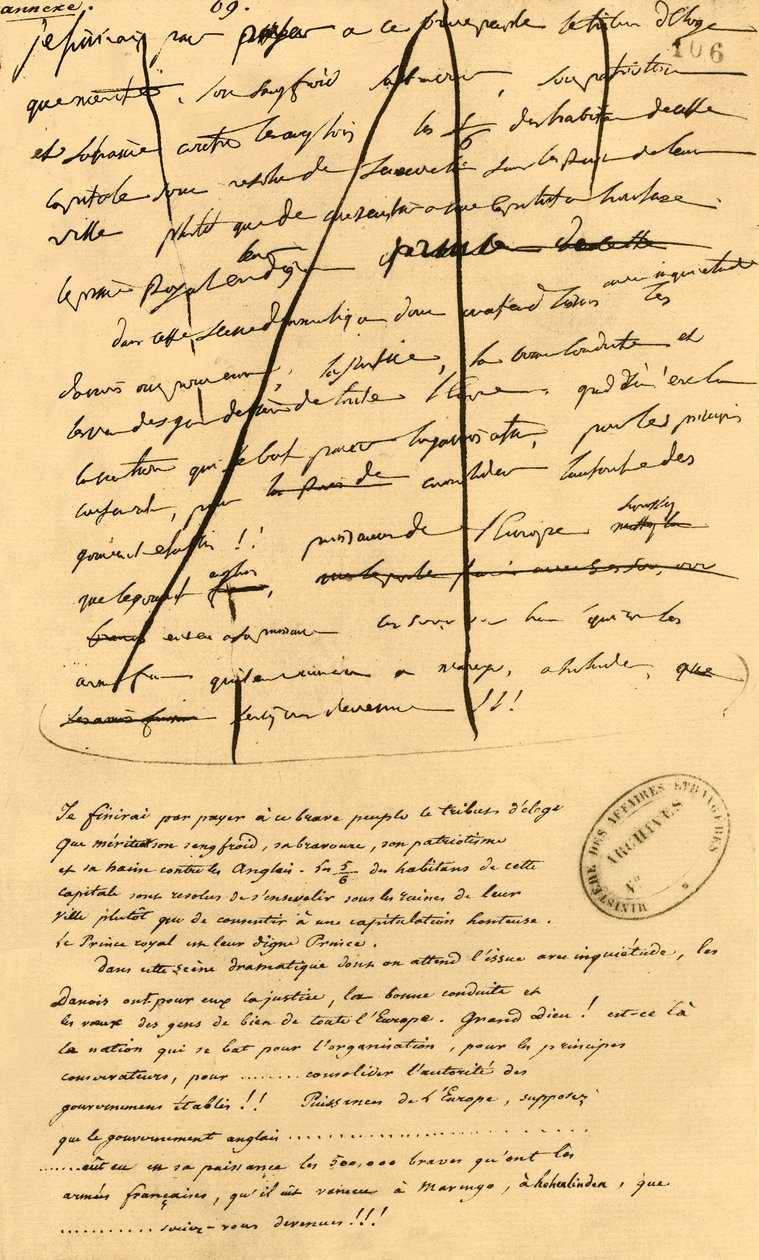 annexe. 69.
106
je finirai par payer a ce brave peuple le tribut d'eloge
que merite, son sang froid sa bravoure, son patriotisme
et sa haine contre les anglois les 5/6 des habitans de cette
capitale sont resolus de s'ensevelir sous les ruines de leur
ville plutot que de consentir a une capitulation honteuse.
le prince Royal est leur digne
dans cette scene dramatique dont on attend l'issue avec inquietude les
danois ont pour eux, la justice, la bonne conduite et
les voeux des gens de bien de toute l'Europe. grand Dieu! est ce la
la nation qui se bat pour l'organisation, pour les principes
conservat, pour consolider l'autorité des
gouvern etablis!! puissances de l'Europe supposez
que le gouvt anglois
eut eu en sa puissance les 500,000 braves qu'ont les
armées fran qu'il eut vaincu a marengo, a hohenlinden, que
seriez vous devenues!!!
Je finirai par payer à ce brave peuple le tribut d'éloge
Que mérite son sang froid, sa bravoure, son patriotisme
et sa haine contre les Anglais. Les 5/6 des habitans de cette
capitale sont resolus de s'ensevelir sous les ruines de leur
ville plutôt que de consentir à une capitulation honteuse.
Le Prince royal est leur digne Prince.
Dans cette scène dramatique dont on attend l'issue avec inquiétude, les
Danois ont pour eux la justice, la bonne conduite et
les vœux des gens de bien de toute l'Europe. Grand Dieu! est-ce là
la nation qui se bat pour l'organisation, pour les principes
conservateurs, pour ........ consolider l'autorité des
gouvernemens établis!! Puissances de l'Europe, supposez
que le gouvernement anglais ..............................
.......eût eu en sa puissance les 500,000 braves qu'ont les
armées françaises, qu'il eût vaincu à Marengo, à hohenlinden, que
........... seriez-vous devenues!!!
MINISTÈRE DES AFFAIRES ETRANGÈRES
ARCHIVES
No